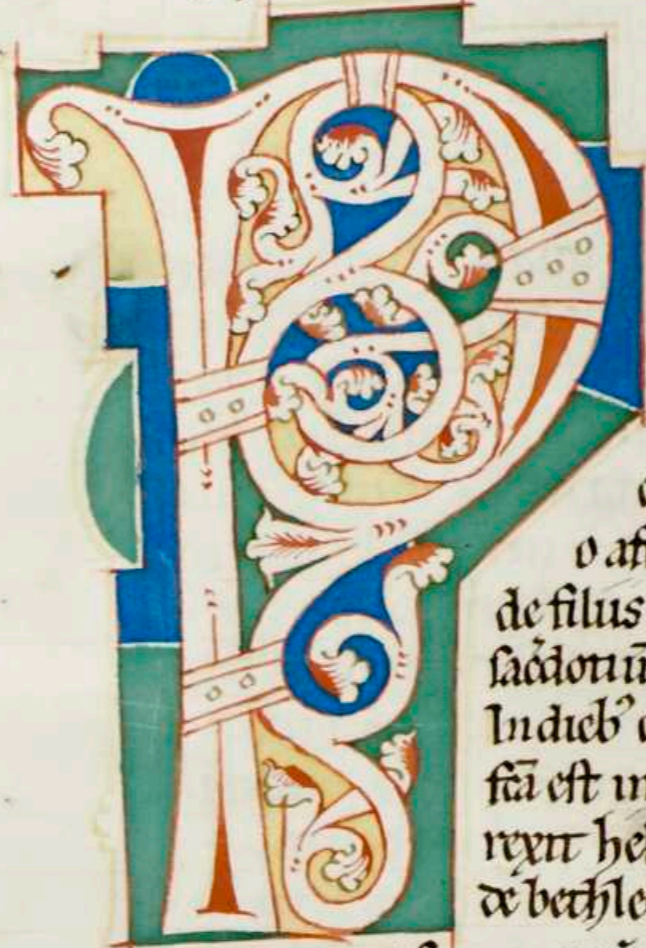 P
de filiis
sac̄dotiū
In dieb᾽
fc̄a est in
rexit he
de bethle